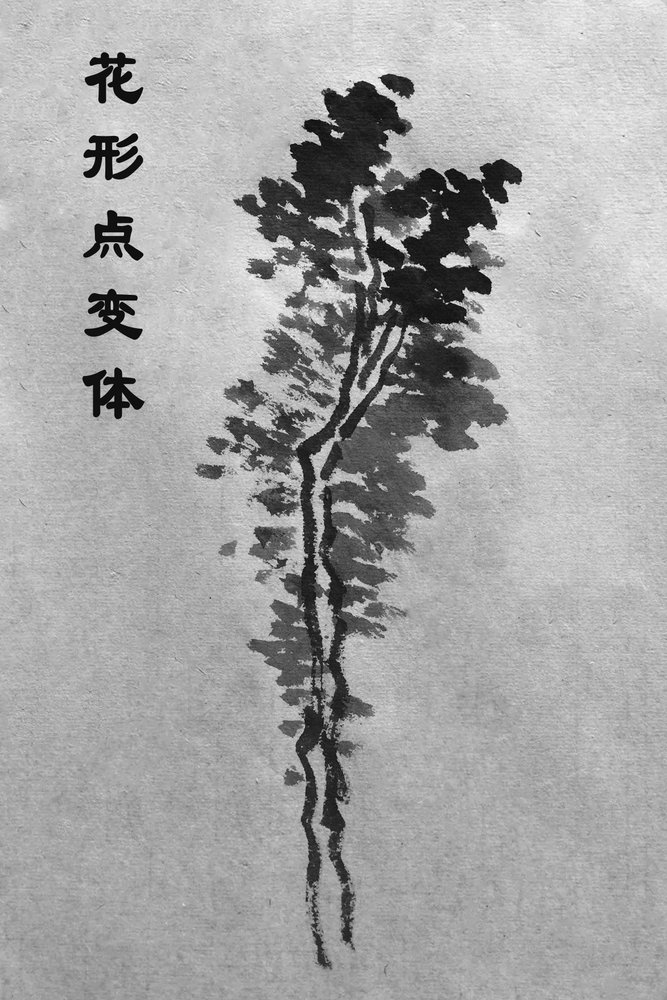 花形点变体